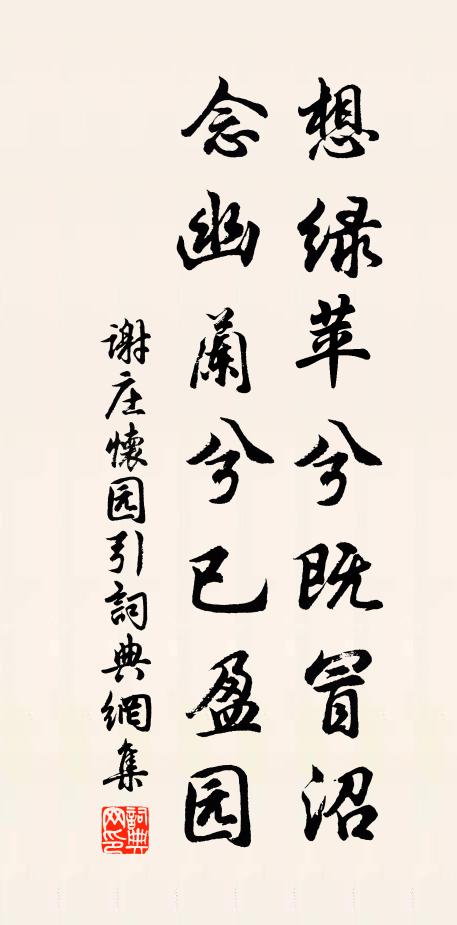 想绿苹兮既冒沼
念幽蘭兮已盈园
谢庄懷园引詞典網集
詞典网印